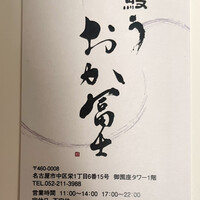 鰻う
おか冨士
〒460-0008
名古屋市中区栄1丁目6番15号 御園座タワー1階
TEL.052-211-3988
営業時間 11:00〜14:00 17:00〜22:00